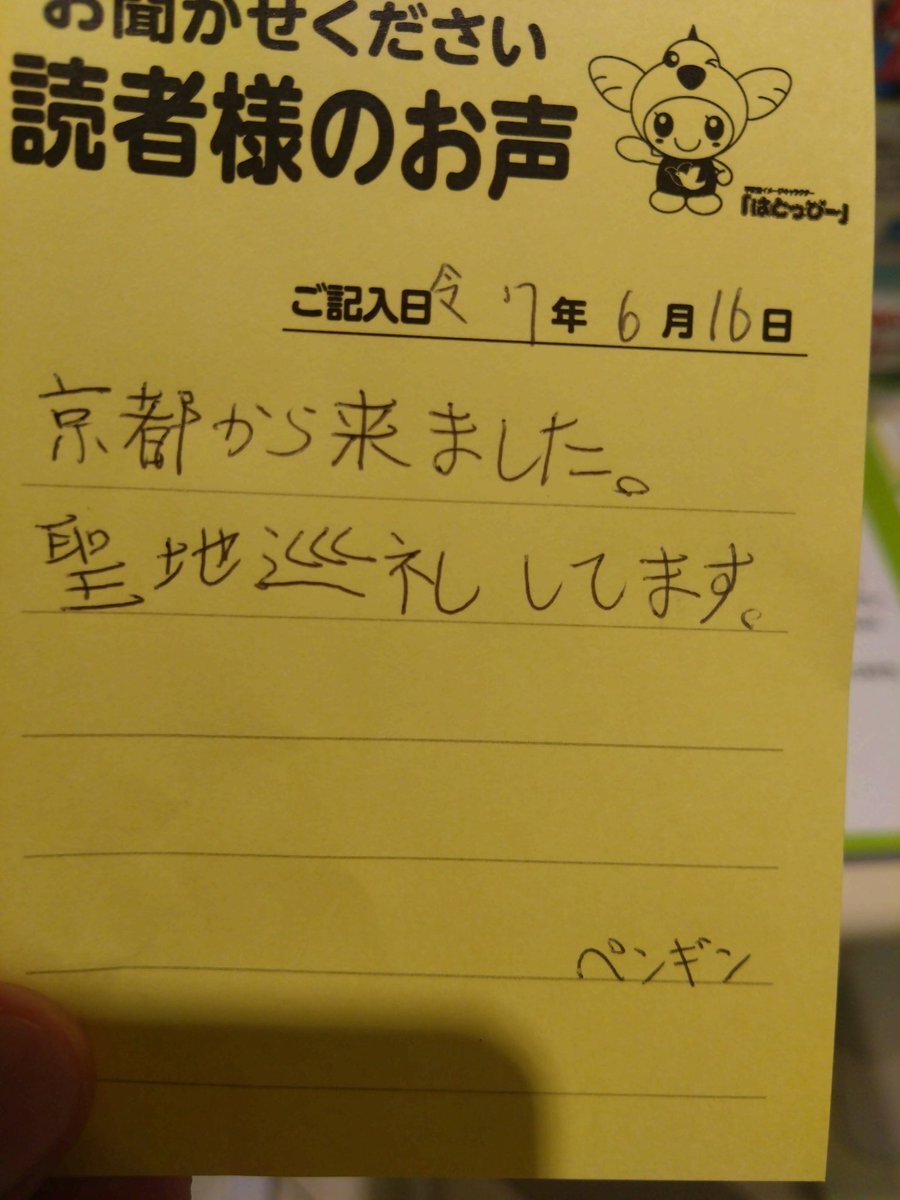 お聞かせください
読者様のお声
「はとっぴー」
ご記入日 令7年6月16日
京都から来ました。
聖地巡礼してます。
ペンギン